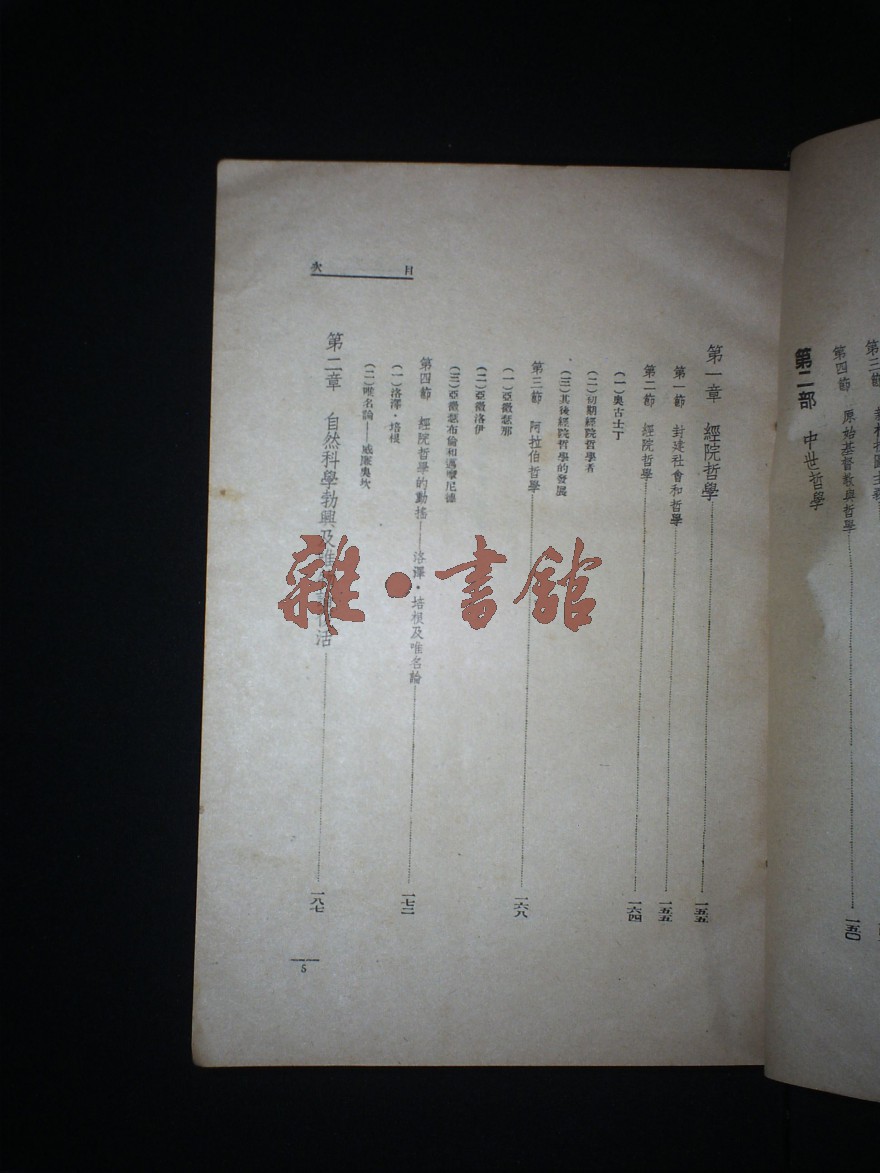 第四節 原始基督教與哲學 一五〇
第二部 中世哲學
目次
第一章 經院哲學 一五五
第一節 封建社會和哲學 一五五
第二節 經院哲學 一六四
(一)奧古士丁
(二)初期經院哲學者
(三)其後經院哲學的發展
第三節 阿拉伯哲學 一六八
(一)亞微瑟那
(二)亞微洛伊
(三)亞微瑟布倫和邁摩尼德
第四節 經院哲學的動搖——洛澤·培根及唯名論 一七二
(一)洛澤·培根
(二)唯名論——威廉奧坎
第二章 自然科學勃興及唯 活 一八七
5
雜·書館